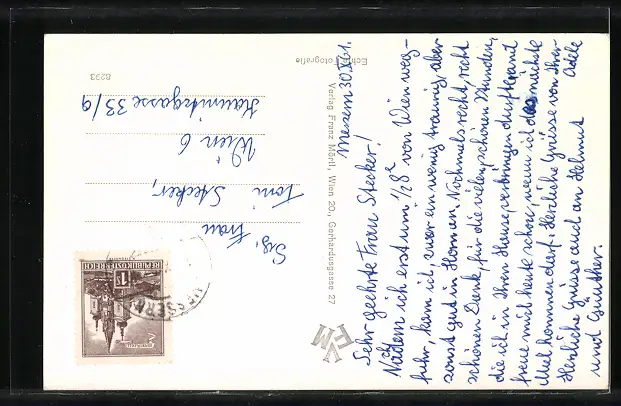 Messern 30.XI.61.
Sehr geehrte Frau Stecker!
Nachdem ich erst um 1/2 8h von Wien weg-
fuhr, kam ich, zwar ein wenig traurig, aber
sonst gut in Horn an. Nochmals recht, recht
schönen Dank, für die vielen, schönen Stunden,
die ich in Ihrem Hause verbringen durfte und
freue mich heute schon, wenn ich das nächste
Mal kommen darf. Herzliche Grüsse von Ihrer
Adele
Herzliche Grüsse auch an Helmut
und Günther.
Echte Fotografie
Verlag Franz Mörtl, Wien 20., Gerhardusgasse 27
FM
8293
Sg. Frau
Toni Stecker,
Wien 6
Kaunitzgasse 33/9
REPUBLIK ÖSTERREICH
1S
MARIAZELL
MESSERN